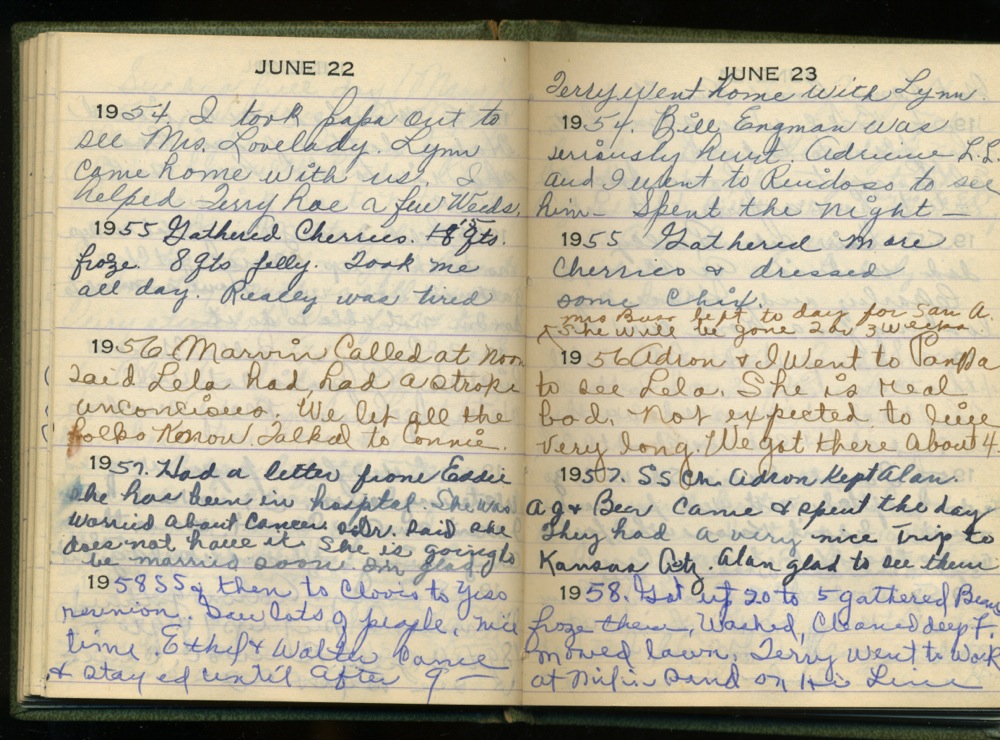 JUNE 22
1954. I took papa out to
see Mrs. Lovelady. Lynn
came home with us. I
helped Terry hoe a few Weeds.
1955 Gathered Cherries. 18 qts.
froze. 8 qts jelly. Took me
all day. Really was tired
1956. Marvin Called at noon
Said Lela had had a stroke
unconcious. We let all the
folks Know. Talked to Connie.
1957. Had a letter from Essie
she has been in hospital. She was
worried about Cancer. Dr. said she
does not have it. She is going to
be married soon. I'm glad
1958 SS & then to Clovis to
reunion. Saw lots of people, nice
time. Ethel & Walter Came
& stayed until after 9 —
JUNE 23
Terry went home with Lynn.
1954. Bill Engman was
seriously hurt. Adriene L.L.
and I went to Ruidoso to see
him — Spent the night —
1955 Gathered more
Cherries & dressed
some Chix.
Mrs Burr left to day for San A.
She will be gone 2 or 3 weeks
1956 Adron & I Went to Pampa
to see Lela. She is real
bad. Not expected to live
very long. We got there about 4.
1957. SS Ch. Adron Kept Alan.
A J & Bea Came & spent the day
They had a very nice Trip to
Kansas City. Alan glad to see them
1958. Got up 20 to 5 gathered Beans
froze them, Washed, Cleaned deep F.
mowed lawn. Terry went to Work
at sand on Line